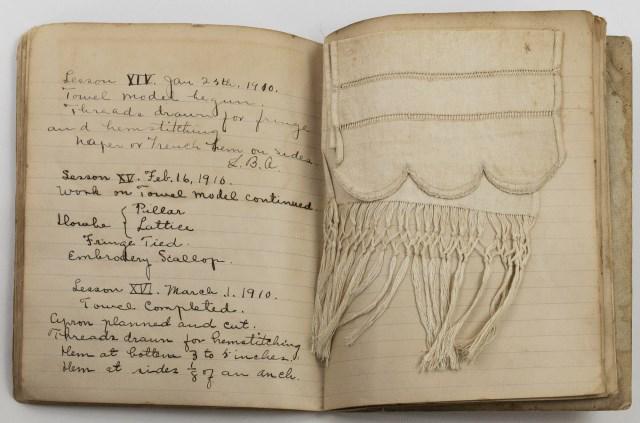 Lesson XIV. Jan 25th, 1910.
Towel model begun.
Threads drawn for fringe
and hemstitching
Naper or French hem on sides.
L.B.A.
Lesson XV. Feb. 16, 1910.
Work on Towel model continued.
Pillar
Lattice
Fringe Tied.
Embrodery Scallop.
Lesson XVI. March. 1. 1910.
Towel Completed.
Apron planned and cut.
Threads drawn for hemstitching
Hem at bottom 3 to 5 inches.
Hem at sides 1/8 of an inch.